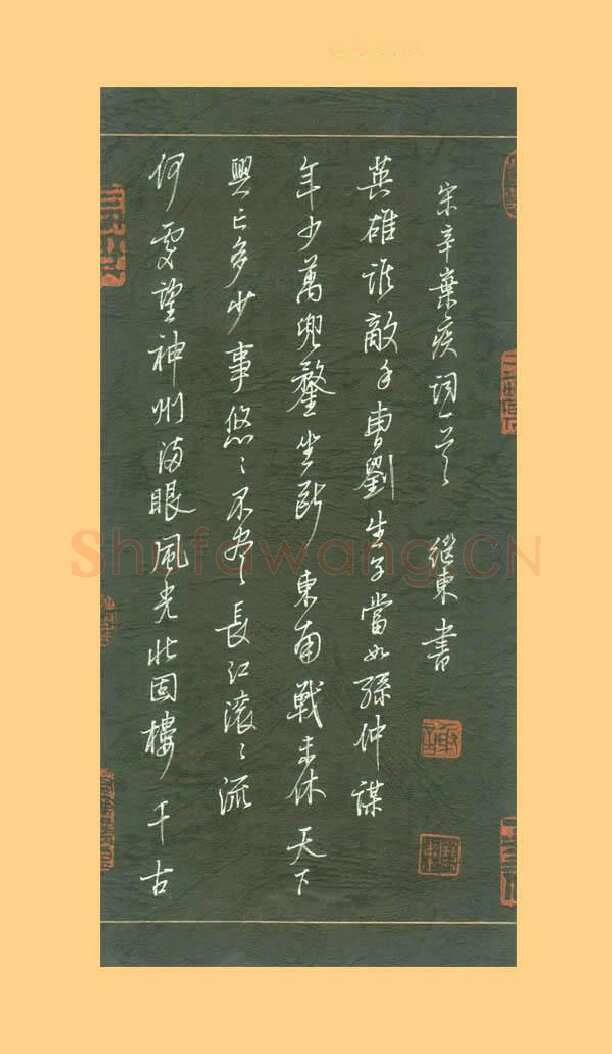 何處望神州滿眼風光北固樓千古
興亡多少事悠〻不尽長江滚〻流
年少萬兜鍪坐斷東南戰未休天下
英雄誰敵手曹劉生子當如孫仲謀
宋辛棄疾詞一首 继東書
Shufawang.CN